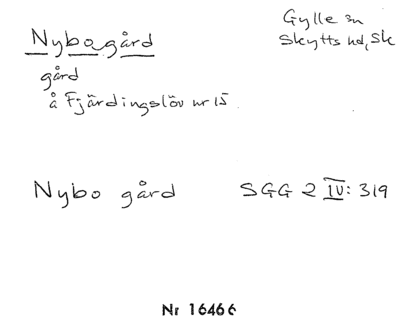 Nybogård
Gylle sn
Skytts hd, Sk
gård
å Fjärdingslöv nr 15
Nybo gård SGG 2 IV: 319
Nr 16466